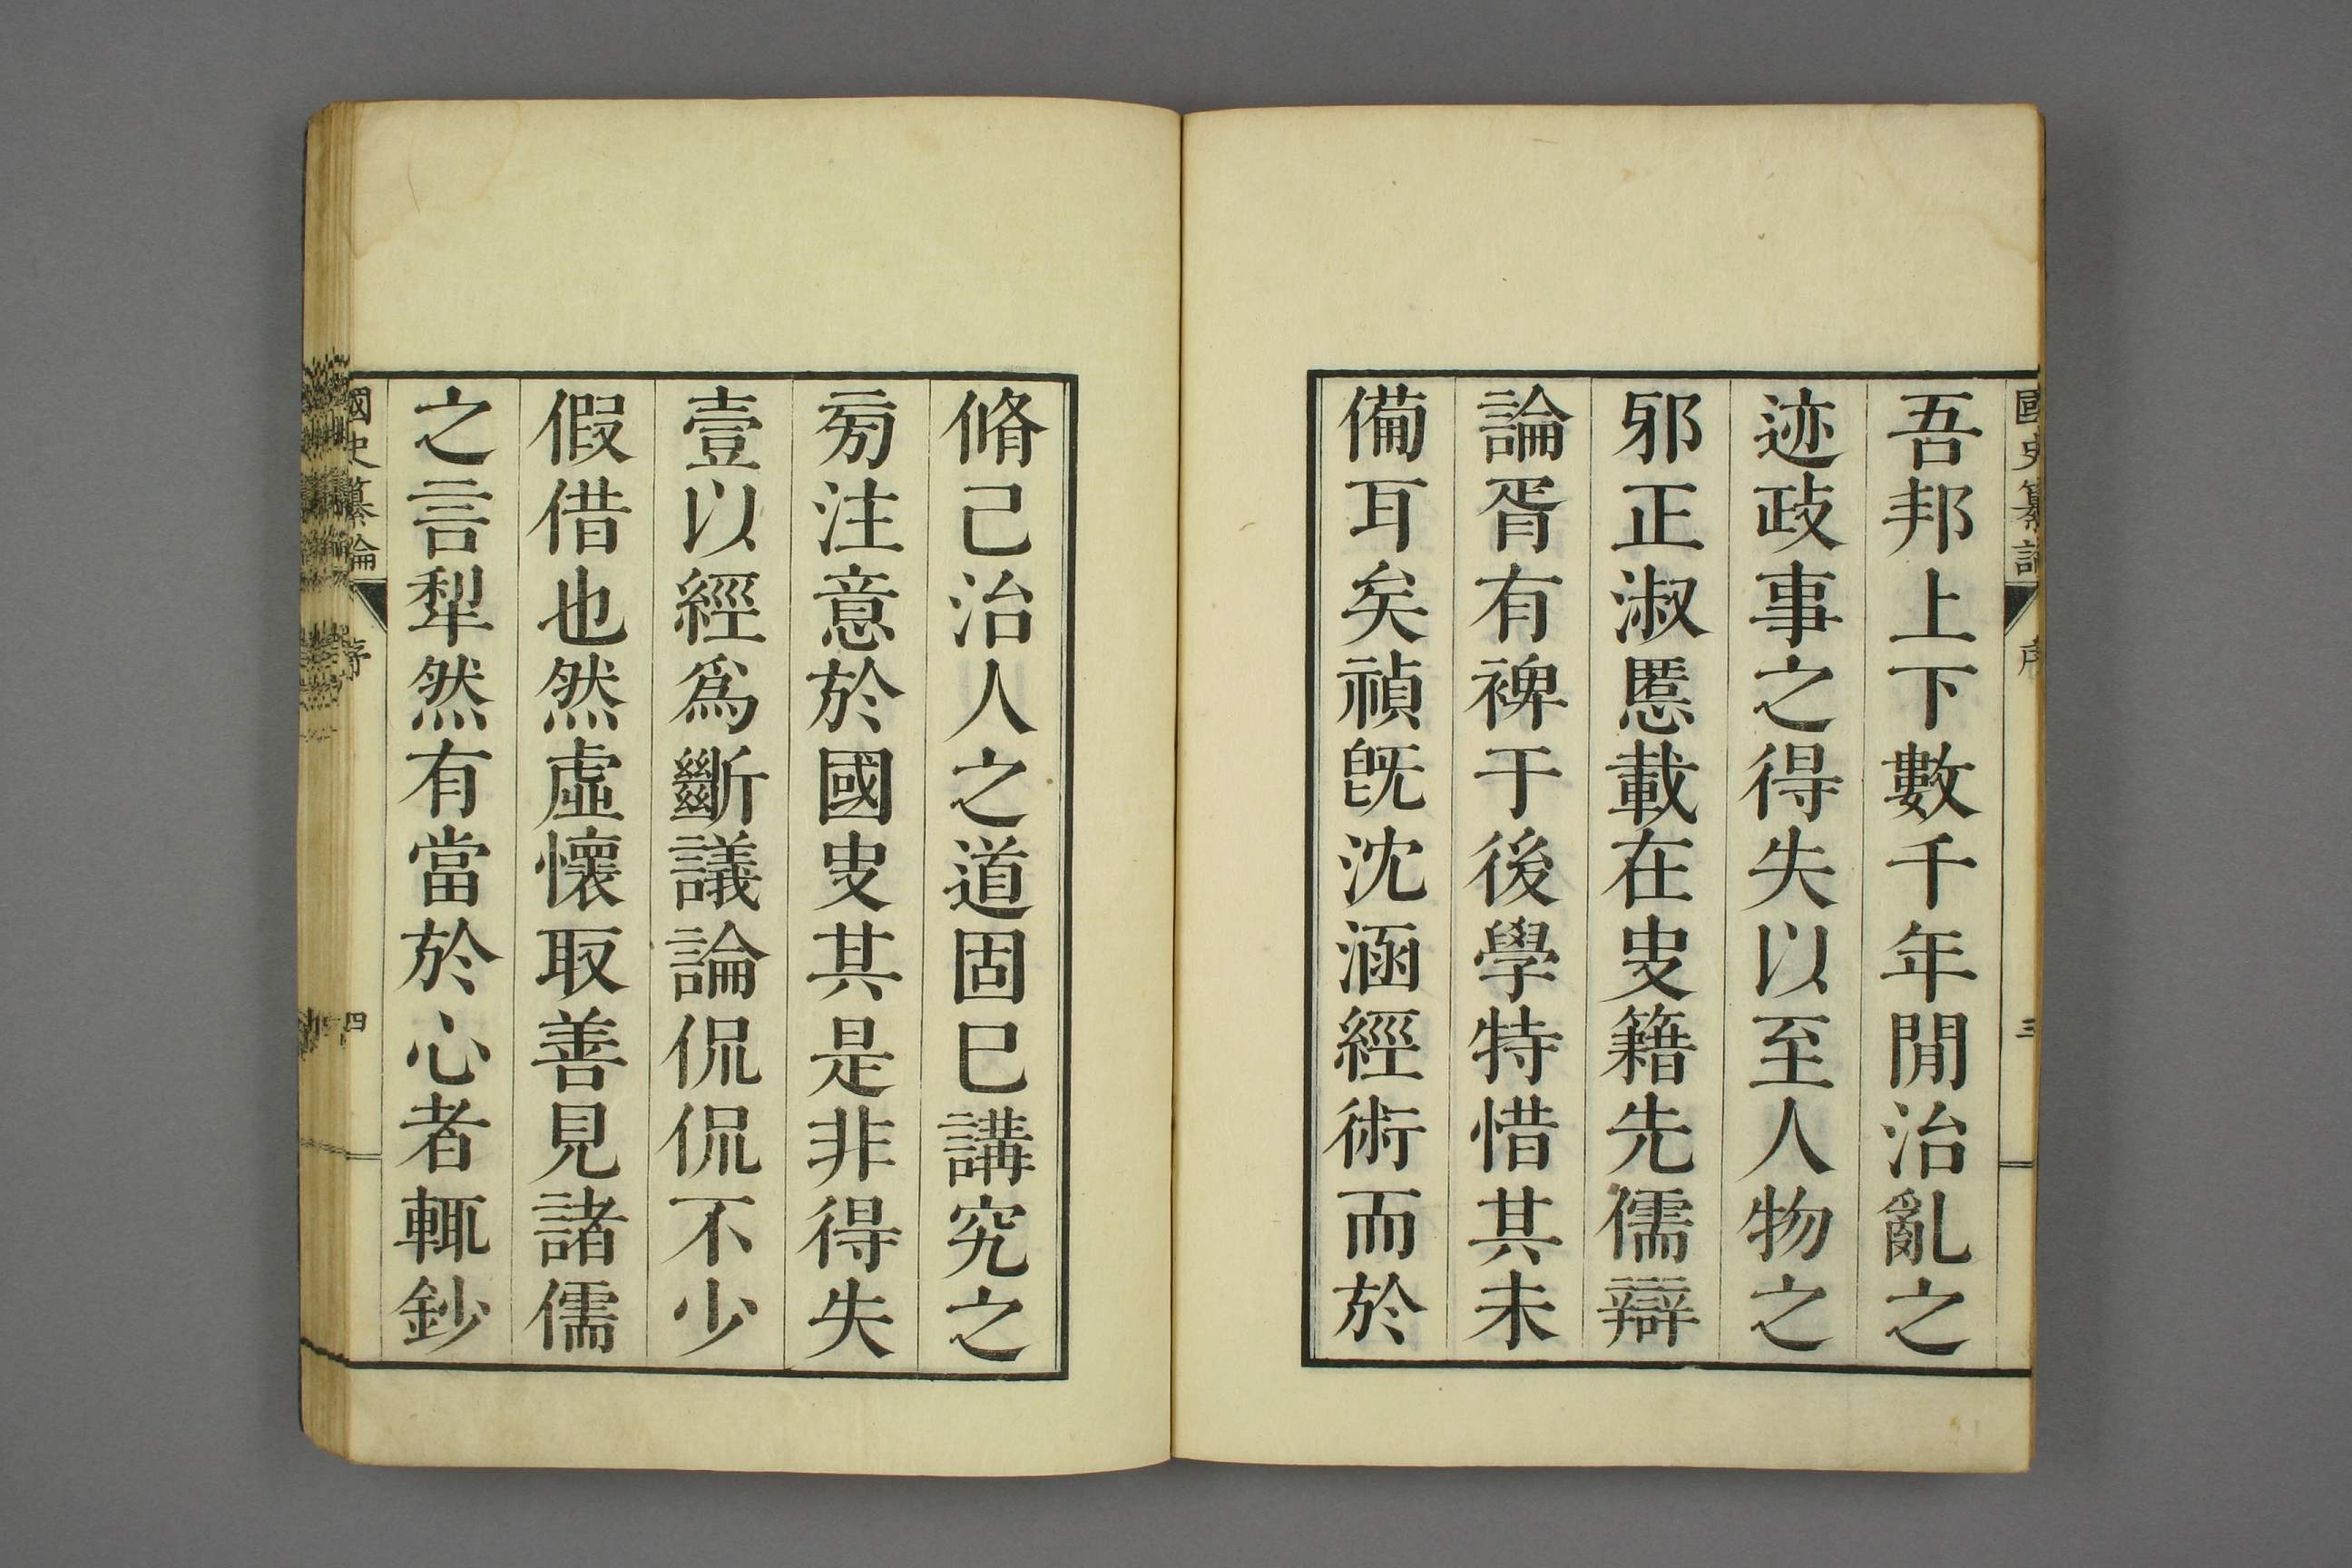 國史纂論 序 三
吾邦上下數千年閒治亂之
迹政事之得失以至人物之
邪正淑慝載在史籍先儒辯
論胥有裨于後學特惜其未
備耳矣禎旣沈涵經術而於
脩己治人之道固已講究之
旁注意於國史其是非得失
壹以經爲斷議論侃侃不少
假借也然虛懷取善見諸儒
之言犁然有當於心者輒鈔
國史纂論 序 四